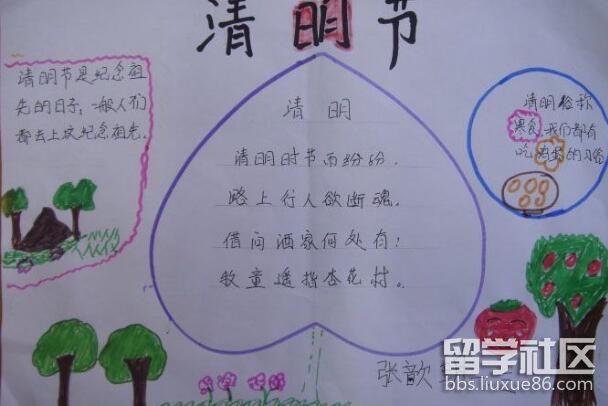 清明节
清明节是纪念祖
先的日子，一般人们
都去上坟纪念祖先。
清 明
清明时节雨纷纷，
路上行人欲断魂。
借问酒家何处有？
牧童遥指杏花村。
清明俗称
寒食，我们都有
吃鸡蛋的习俗
张歆
留学社区
bbs.liuxue86.com